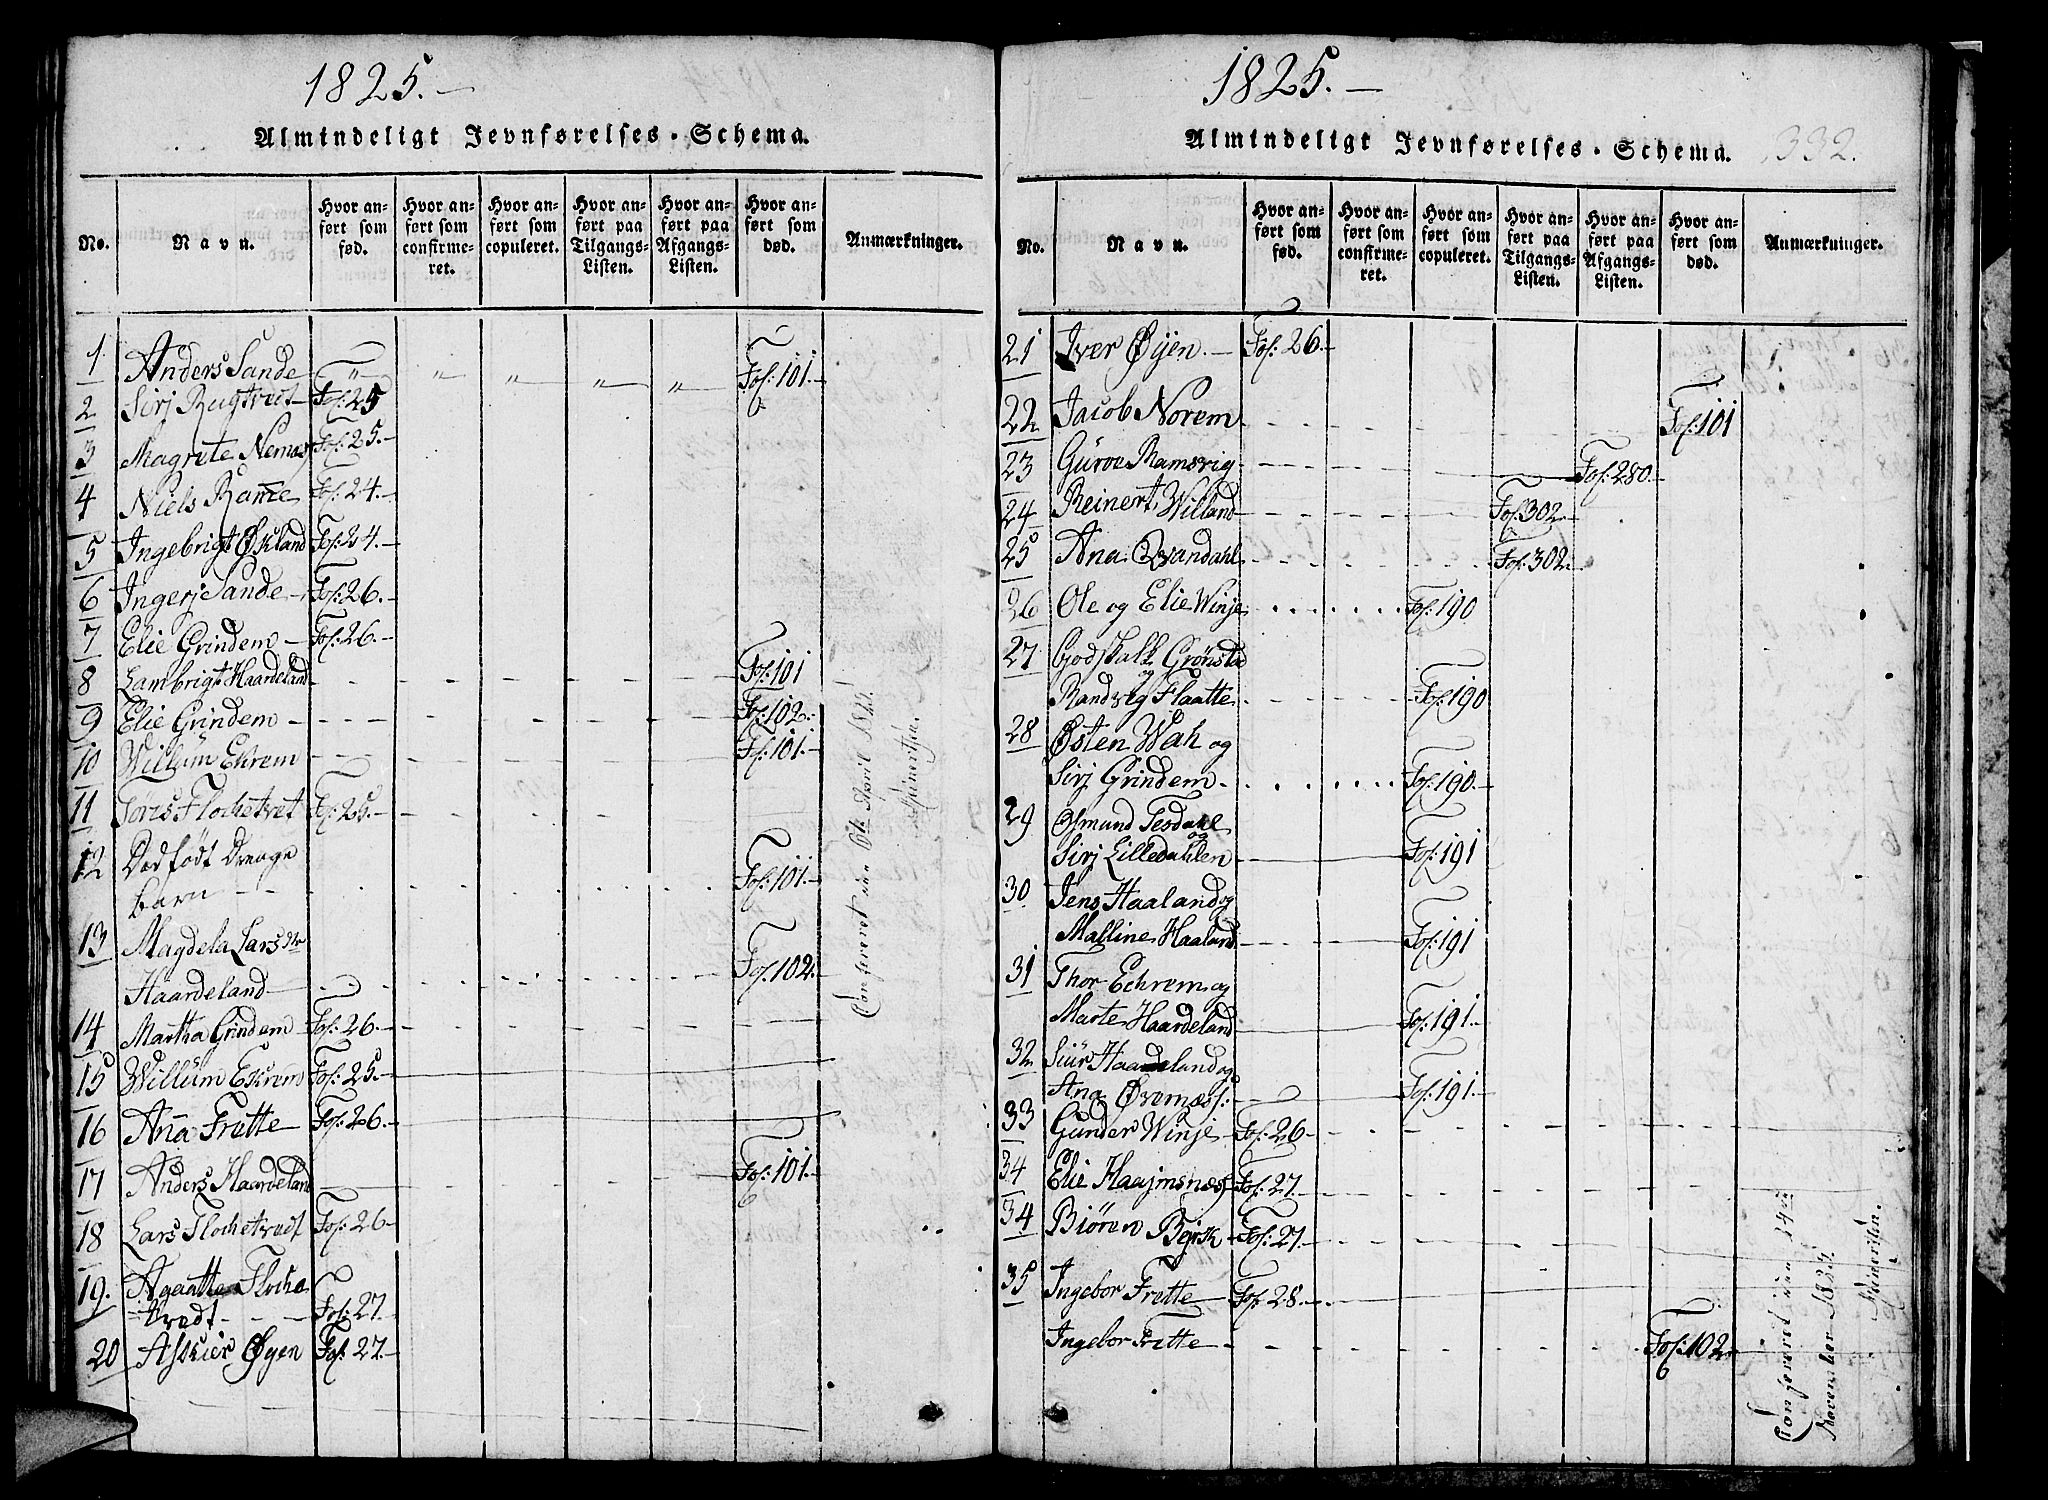 1825.
Almindeligt Jevnførelses-Schema.
No.
Navn.
Hvor anført som fød.
Hvor anført som confirmeret.
Hvor anført som copuleret.
Hvor anført paa Tilgangs-Listen.
Hvor anført paa Afgangs-Listen.
Hvor anført som død.
Anmærkninger.
1 Anders Sande " " " " " Fol: 101.
2 Sirj Fol: 25
3 Magrete Fol: 25.
4 Niels Rame Fol: 24.
5 Ingebrigt Økland Fol: 24.
6 Ingerj Sande Fol: 26.
7 Elie Grindem Fol: 26.
8 Lambrigt Haardeland Fol: 101
9 Elie Grindem Fol: 102.
10 Willum Ekrem Fol: 101.
11 Flochetvet Fol: 25.
12 Dødfødt Drenge
Barn Fol: 101.
13 Magdela Larsdtr
Haardeland Fol: 102.
14 Martha Grindem Fol: 26.
15 Willum Ekrem Fol: 25.
16 Ana Frette Fol: 26.
17 Anders Haardeland Fol: 101.
18 Lars Flochetvedt Fol: 26
19. Agaatte Floche
tvedt Fol: 27.
20 Askier Øyen Fol: 27.
Confereret den 6te April 1825.
1825.
Almindeligt Jevnførelses-Schema.
332.
No.
Navn.
Hvor anført som fød.
Hvor anført som confirmeret.
Hvor anført som copuleret.
Hvor anført paa Tilgangs-Listen.
Hvor anført paa Afgangs-Listen.
Hvor anført som død.
Anmærkninger.
21 Iver Øyen. Fol: 26.
22 Jacob Norem Fol: 101
23 Gurve Ramsvig Fol: 280.
24 Reinert Willand Fol: 302.
25 Ana Qvandahl Fol: 302.
26 Ole og Elie Winje Fol: 190
27 Godskalk Grønstad
og
Randveg Flaatte Fol: 190
28 Østen Wah og
Sirj Grindem Fol: 190.
29 Osmund Tesdahl
og
Sirj Lilledahlen Fol: 191
30 Jens Haaland og
Malline Haaland Fol: 191
31 Thor Echrem og
Marte Haardeland Fol: 191.
32 Siur Haardeland og
Ana Fol: 191.
33 Gunder Winje Fol: 26
34 Elie Fol: 27.
34 Biøren Fol: 27.
35 Ingebor Frette Fol: 28.
Ingebor Frette Fol: 102
Confereret den 14de
November 1825.